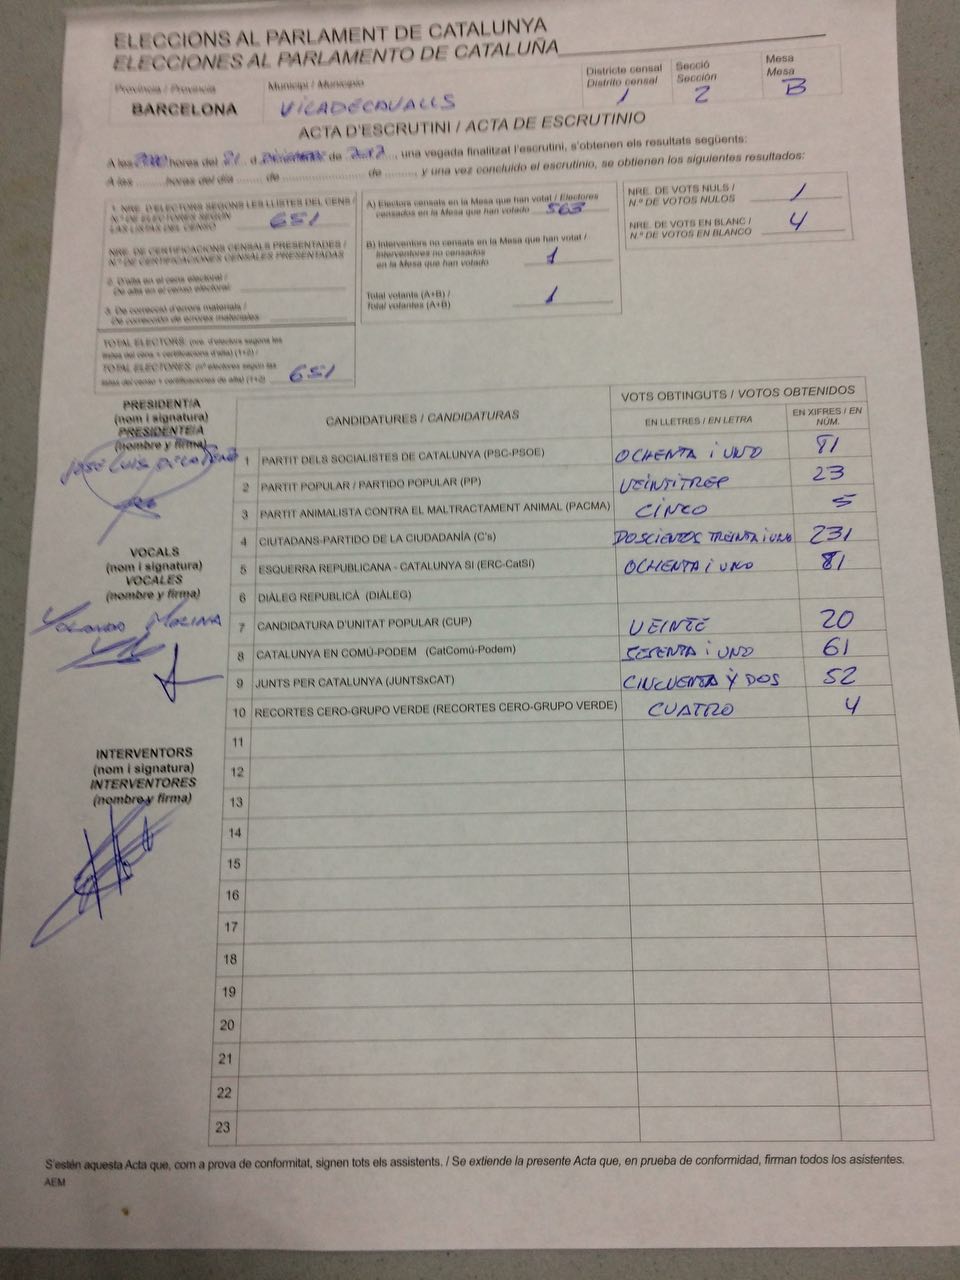 ELECCIONS AL PARLAMENT DE CATALUNYA
ELECCIONES AL PARLAMENTO DE CATALUÑA
Província / Provincia
BARCELONA
Municipi / Municipio
VILADECAVALLS
Districte censal
Distrito censal
1
Secció
Sección
2
Mesa
Mesa
B
ACTA D'ESCRUTINI / ACTA DE ESCRUTINIO
A les hores del 21 d de 2017, una vegada finalitzat l'escrutini, s'obtenen els resultats següents:
A las ......... horas del día ........ de ........................ de ........, y una vez concluido el escrutinio, se obtienen los siguientes resultados:
1. NRE. D'ELECTORS SEGONS LES LLISTES DEL CENS /
N.º DE ELECTORES SEGÚN
LAS LISTAS DEL CENSO 651
NRE. DE CERTIFICACIONS CENSALS PRESENTADES /
N.º DE CERTIFICACIONES CENSALES PRESENTADAS
2. D'alta en el cens electoral /
De alta en el censo electoral
3. De correcció d'errors materials /
De corrección de errores materiales
TOTAL ELECTORS: (nre. d'electors segons les
llistes del cens + certificacions d'alta) (1+2) /
TOTAL ELECTORES: (nº electores según las
listas del censo + certificaciones de alta) (1+2) 651
A) Electors censats en la Mesa que han votat / Electores
censados en la Mesa que han votado 563
B) Interventors no censats en la Mesa que han votat /
Interventores no censados
en la Mesa que han votado 1
Total votants (A+B) /
Total votantes (A+B) 1
NRE. DE VOTS NULS /
N.º DE VOTOS NULOS 1
NRE. DE VOTS EN BLANC /
N.º DE VOTOS EN BLANCO 4
PRESIDENT/A
(nom i signatura)
PRESIDENTE/A
(nombre y firma)
JOSE LUIS
VOCALS
(nom i signatura)
VOCALES
(nombre y firma)
MOLINA
INTERVENTORS
(nom i signatura)
INTERVENTORES
(nombre y firma)
CANDIDATURES / CANDIDATURAS
VOTS OBTINGUTS / VOTOS OBTENIDOS
EN LLETRES / EN LETRA
EN XIFRES / EN NÚM.
1 PARTIT DELS SOCIALISTES DE CATALUNYA (PSC-PSOE) OCHENTA i UNO 81
2 PARTIT POPULAR / PARTIDO POPULAR (PP) VEINTITRES 23
3 PARTIT ANIMALISTA CONTRA EL MALTRACTAMENT ANIMAL (PACMA) CINCO 5
4 CIUTADANS-PARTIDO DE LA CIUDADANÍA (C's) DOSCIENTOS TREINTA i UNO 231
5 ESQUERRA REPUBLICANA - CATALUNYA SI (ERC-CatSí) OCHENTA i UNO 81
6 DIÀLEG REPUBLICÀ (DIÀLEG)
7 CANDIDATURA D'UNITAT POPULAR (CUP) VEINTE 20
8 CATALUNYA EN COMÚ-PODEM (CatComú-Podem) SESENTA i UNO 61
9 JUNTS PER CATALUNYA (JUNTSxCAT) CINCUENTA Y DOS 52
10 RECORTES CERO-GRUPO VERDE (RECORTES CERO-GRUPO VERDE) CUATRO 4
11
12
13
14
15
16
17
18
19
20
21
22
23
S'estén aquesta Acta que, com a prova de conformitat, signen tots els assistents. / Se extiende la presente Acta que, en prueba de conformidad, firman todos los asistentes.
AEM